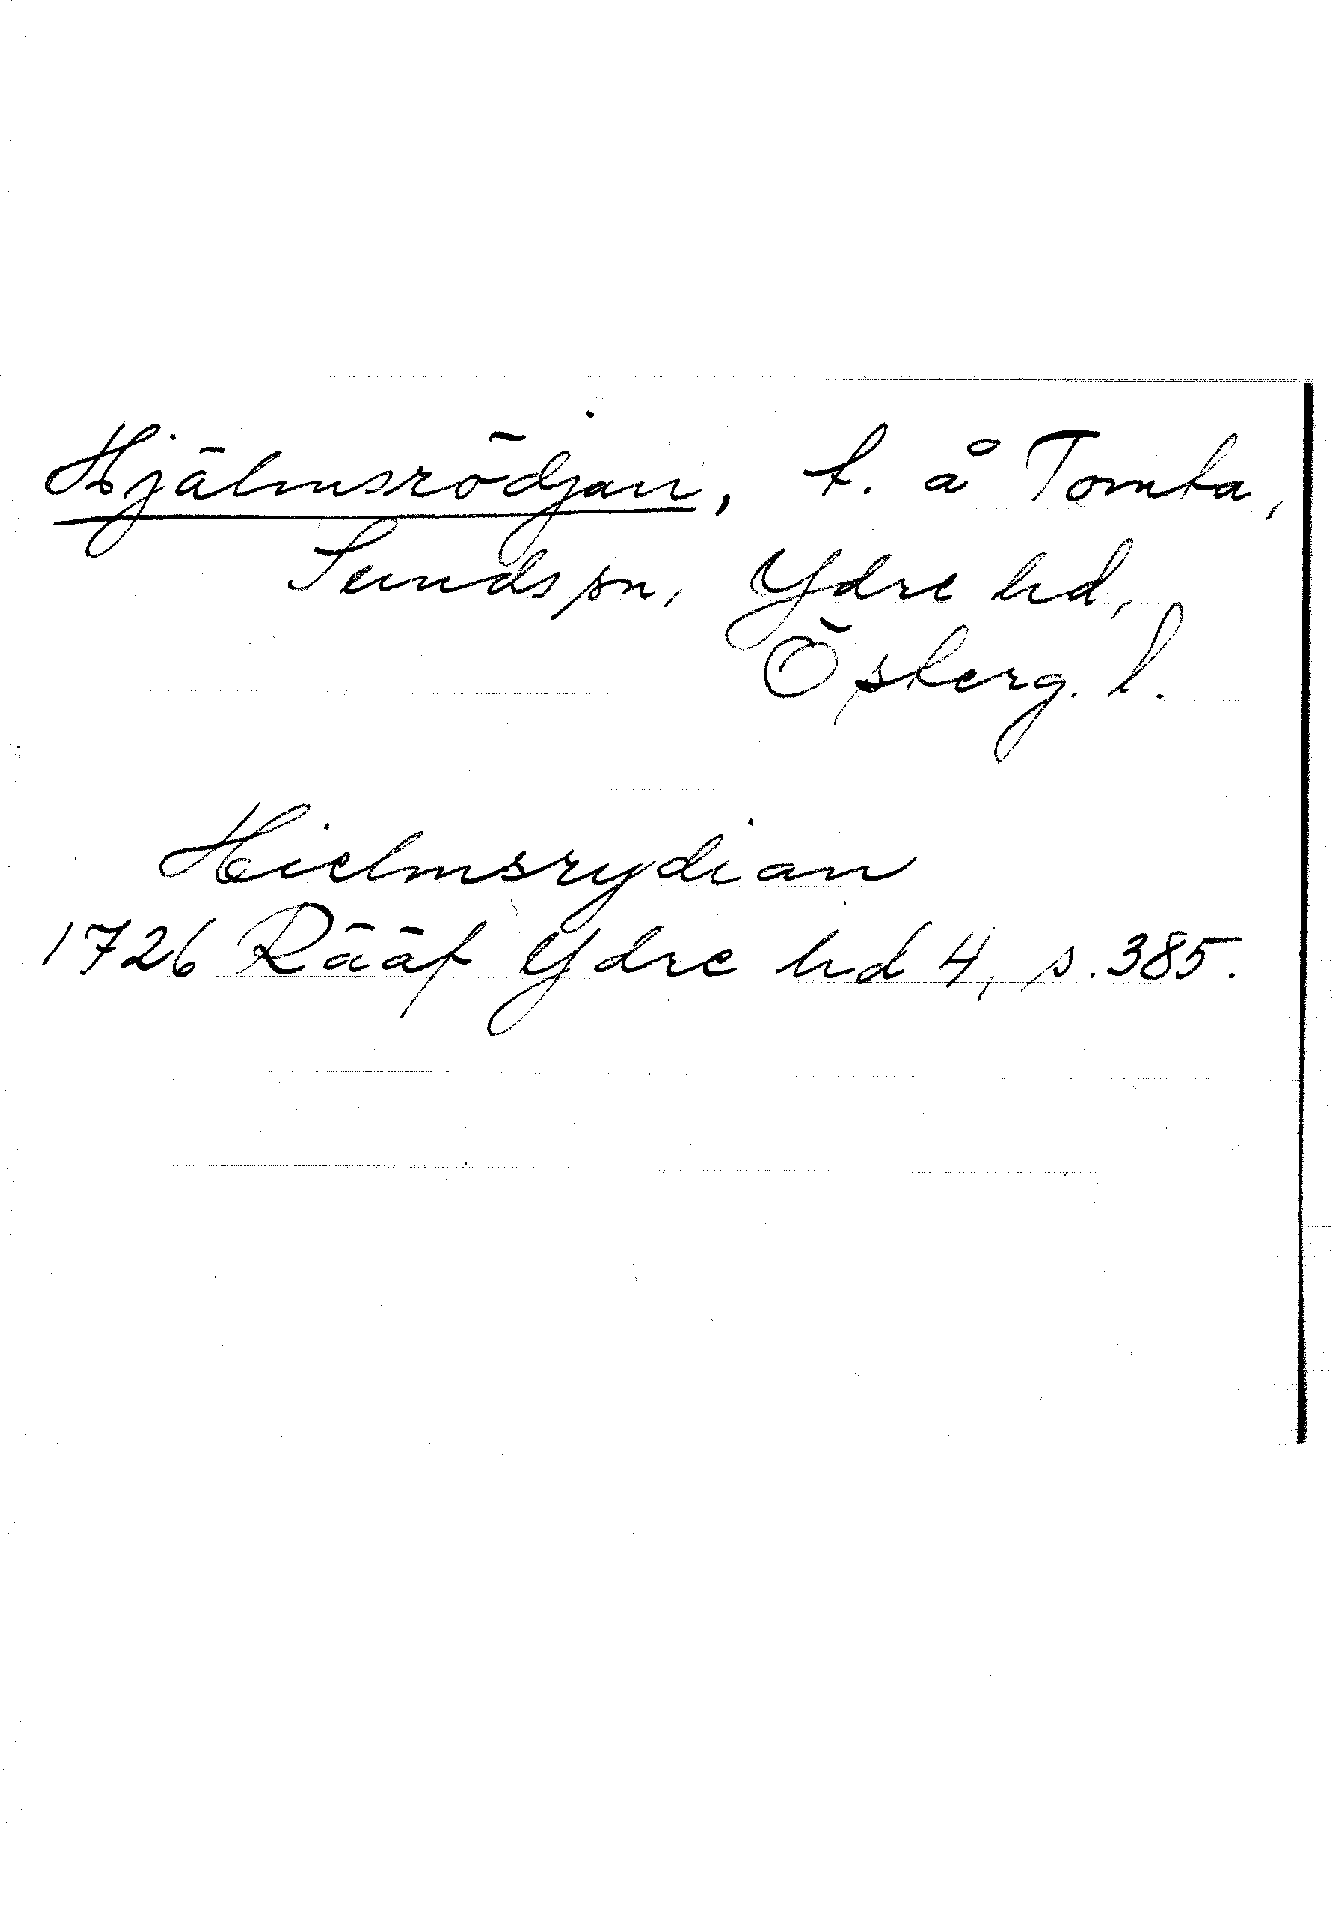 Hjälmsrödjan, t. å Tomta,
Sunds sn, Ydre hd,
Österg. l.
Hielmsrydian
1726 Rääf Ydre hd 4, s. 385.